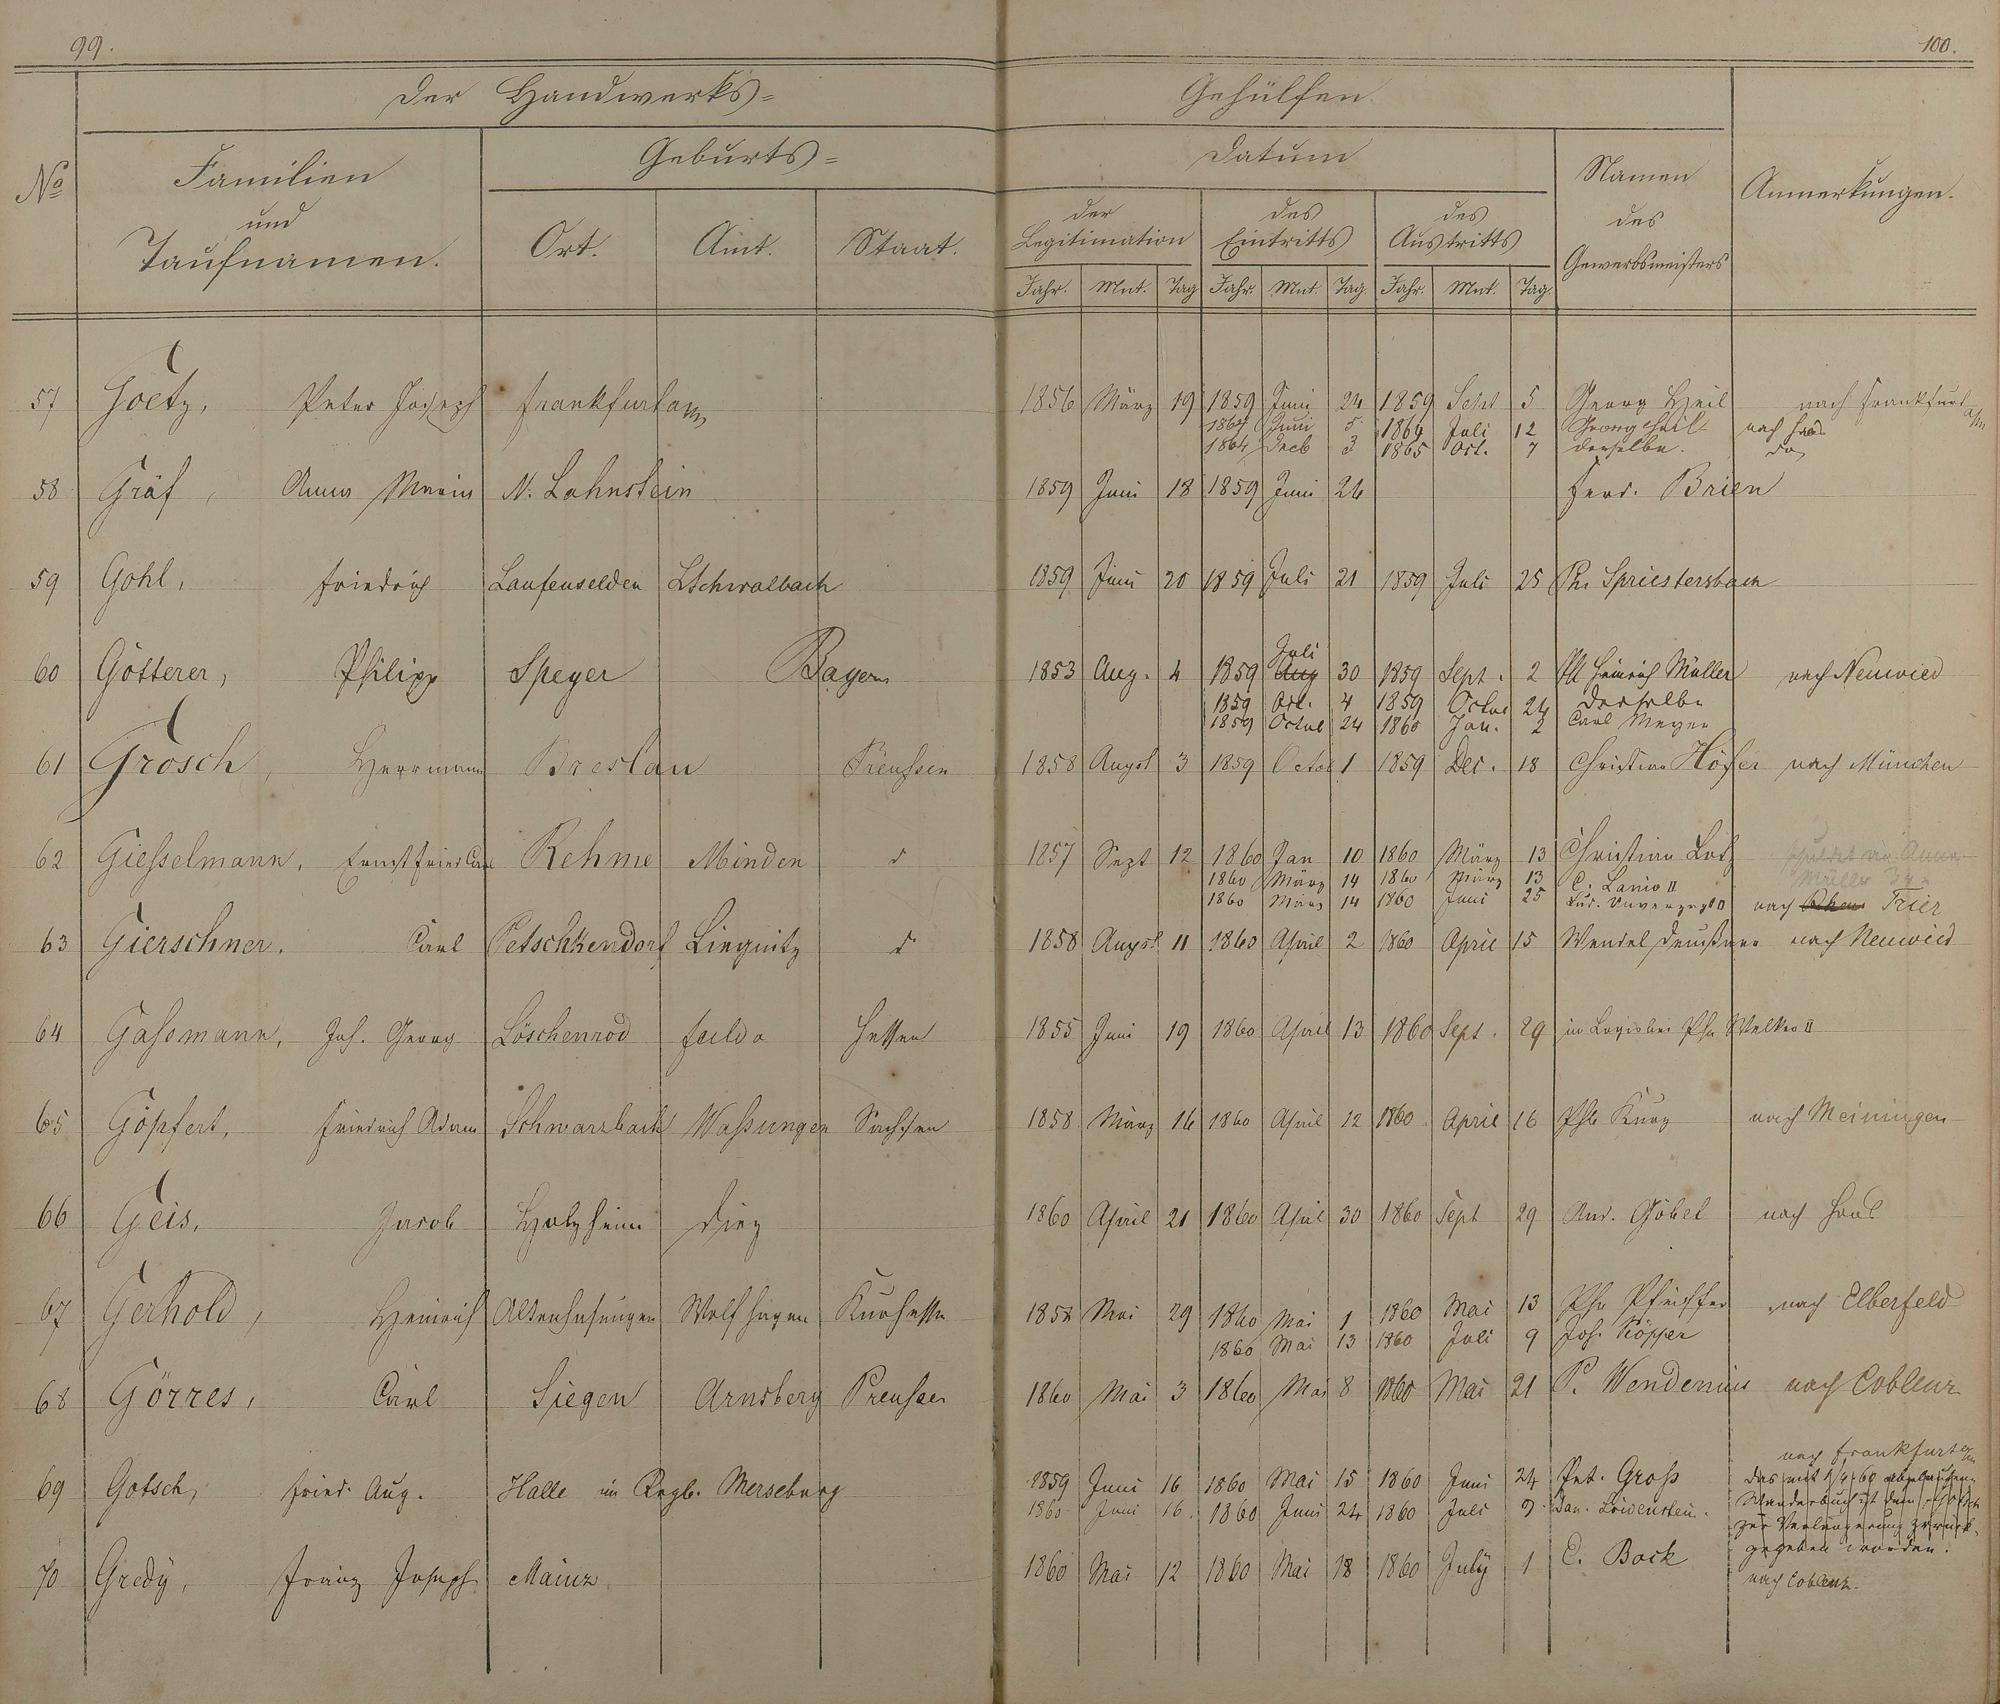 99.
100.
Der Handwerks=
Gehülfen.
No
Familien
und
Taufnamen.
Geburts=
Ort.
Amt.
Staat.
Datum
der
Legitimation
des
Eintritts
des
Austritts
Jahr. Mnt. Tag Jahr. Mnt. Tag Jahr. Mnt. Tag.
Namen
des
Gewerbsmeisters
Anmerkungen.
57 Goetz, Peter Joseph Frankfurt a/m 1856 März 19 1859 Juni 24 1859 Sept 5 Georg Heil nach Frankfurt a/m
1864 Juni 5 1864 Juli 12 Georg Heil nach
1864 Decb 3 1865 Oct. 7 derselbe. do
58 Gräf, Anna Maria N. Lahnstein 1859 Juni 18 1859 Juni 26 Ferd. Brien
59 Gohl, Friedrich Laufenselden LSchwalbach 1859 Juni 20 1859 Juli 21 1859 Juli 25 Ph. Spriestersbach
60 Götterer, Philipp Speyer Bayern 1853 Aug. 4 1859 Aug Juli 30 1859 Sept. 2 Ph Heinrich Müller nach Neuwied
1859 Oct. 4 1859 Octbr 24 Derselbe
1859 Octbr 24 1860 Jan. 2 Carl Meyer
61 Grosch, Herrmann Breslau Preussen 1858 Augst 3 1859 Octbr 1 1859 Dec. 18 Christian Höfer nach München
62 Giesselmann, Ernst Fried Carl Rehme Minden d 1857 Sept 12 1860 Jan 10 1860 März 13 Christian Lotz
1860 März 14 1860 März 13 C. Lanio II
1860 März 14 1860 Juni 25 Lud. Unverzagt nach Trier
63 Gierschner, Carl Petschkendorf Liegnitz d 1858 Augst 11 1860 April 2 1860 April 15 Wendel nach Neuwied
64 Gassmann, Joh. Georg Löschenrod Fulda Hessen 1855 Juni 19 1860 April 13 1860 Sept. 29 in Logis bei Ph. Welker II
65 Göpfert, Friedrich Adam Schwarzbach Wasungen Sachsen 1858 März 16 1860 April 12 1860 April 16 Phil Kurz nach Meiningen
66 Geis, Jacob Holzheim Diez 1860 April 21 1860 April 30 1860 Sept 29 And. Göbel nach
67 Gerhold, Heinrich Altenhasungen Wolfhagen Kurhessen 1858 Mai 29 1860 Mai 1 1860 Mai 13 Ph. Pfeiffer nach Elberfeld
1860 Mai 13 1860 Juli 9 Joh. Köpper
68 Görres, Carl Siegen Arnsberg Preussen 1860 Mai 3 1860 Mai 8 1860 Mai 21 P. Wendenius nach Coblenz
69 Gotsch, Fried. Aug. Halle im Regb. Merseburg 1859 Juni 16 1860 Mai 15 1860 Juni 24 Pet. Gross nach Frankfurt a/m
1860 Juni 16. 1860 Juni 24 1860 Juli 9. Dan. Löwenstein.
Das mit 1/4 60 abgelaufene
Wanderbuch ist dem Gotsch
zur Verlängerung zurück-
gegeben worden.
70 Gredy, Franz Joseph Mainz 1860 Mai 12 1860 Mai 18 1860 July 1 C. Bock nach Coblenz.